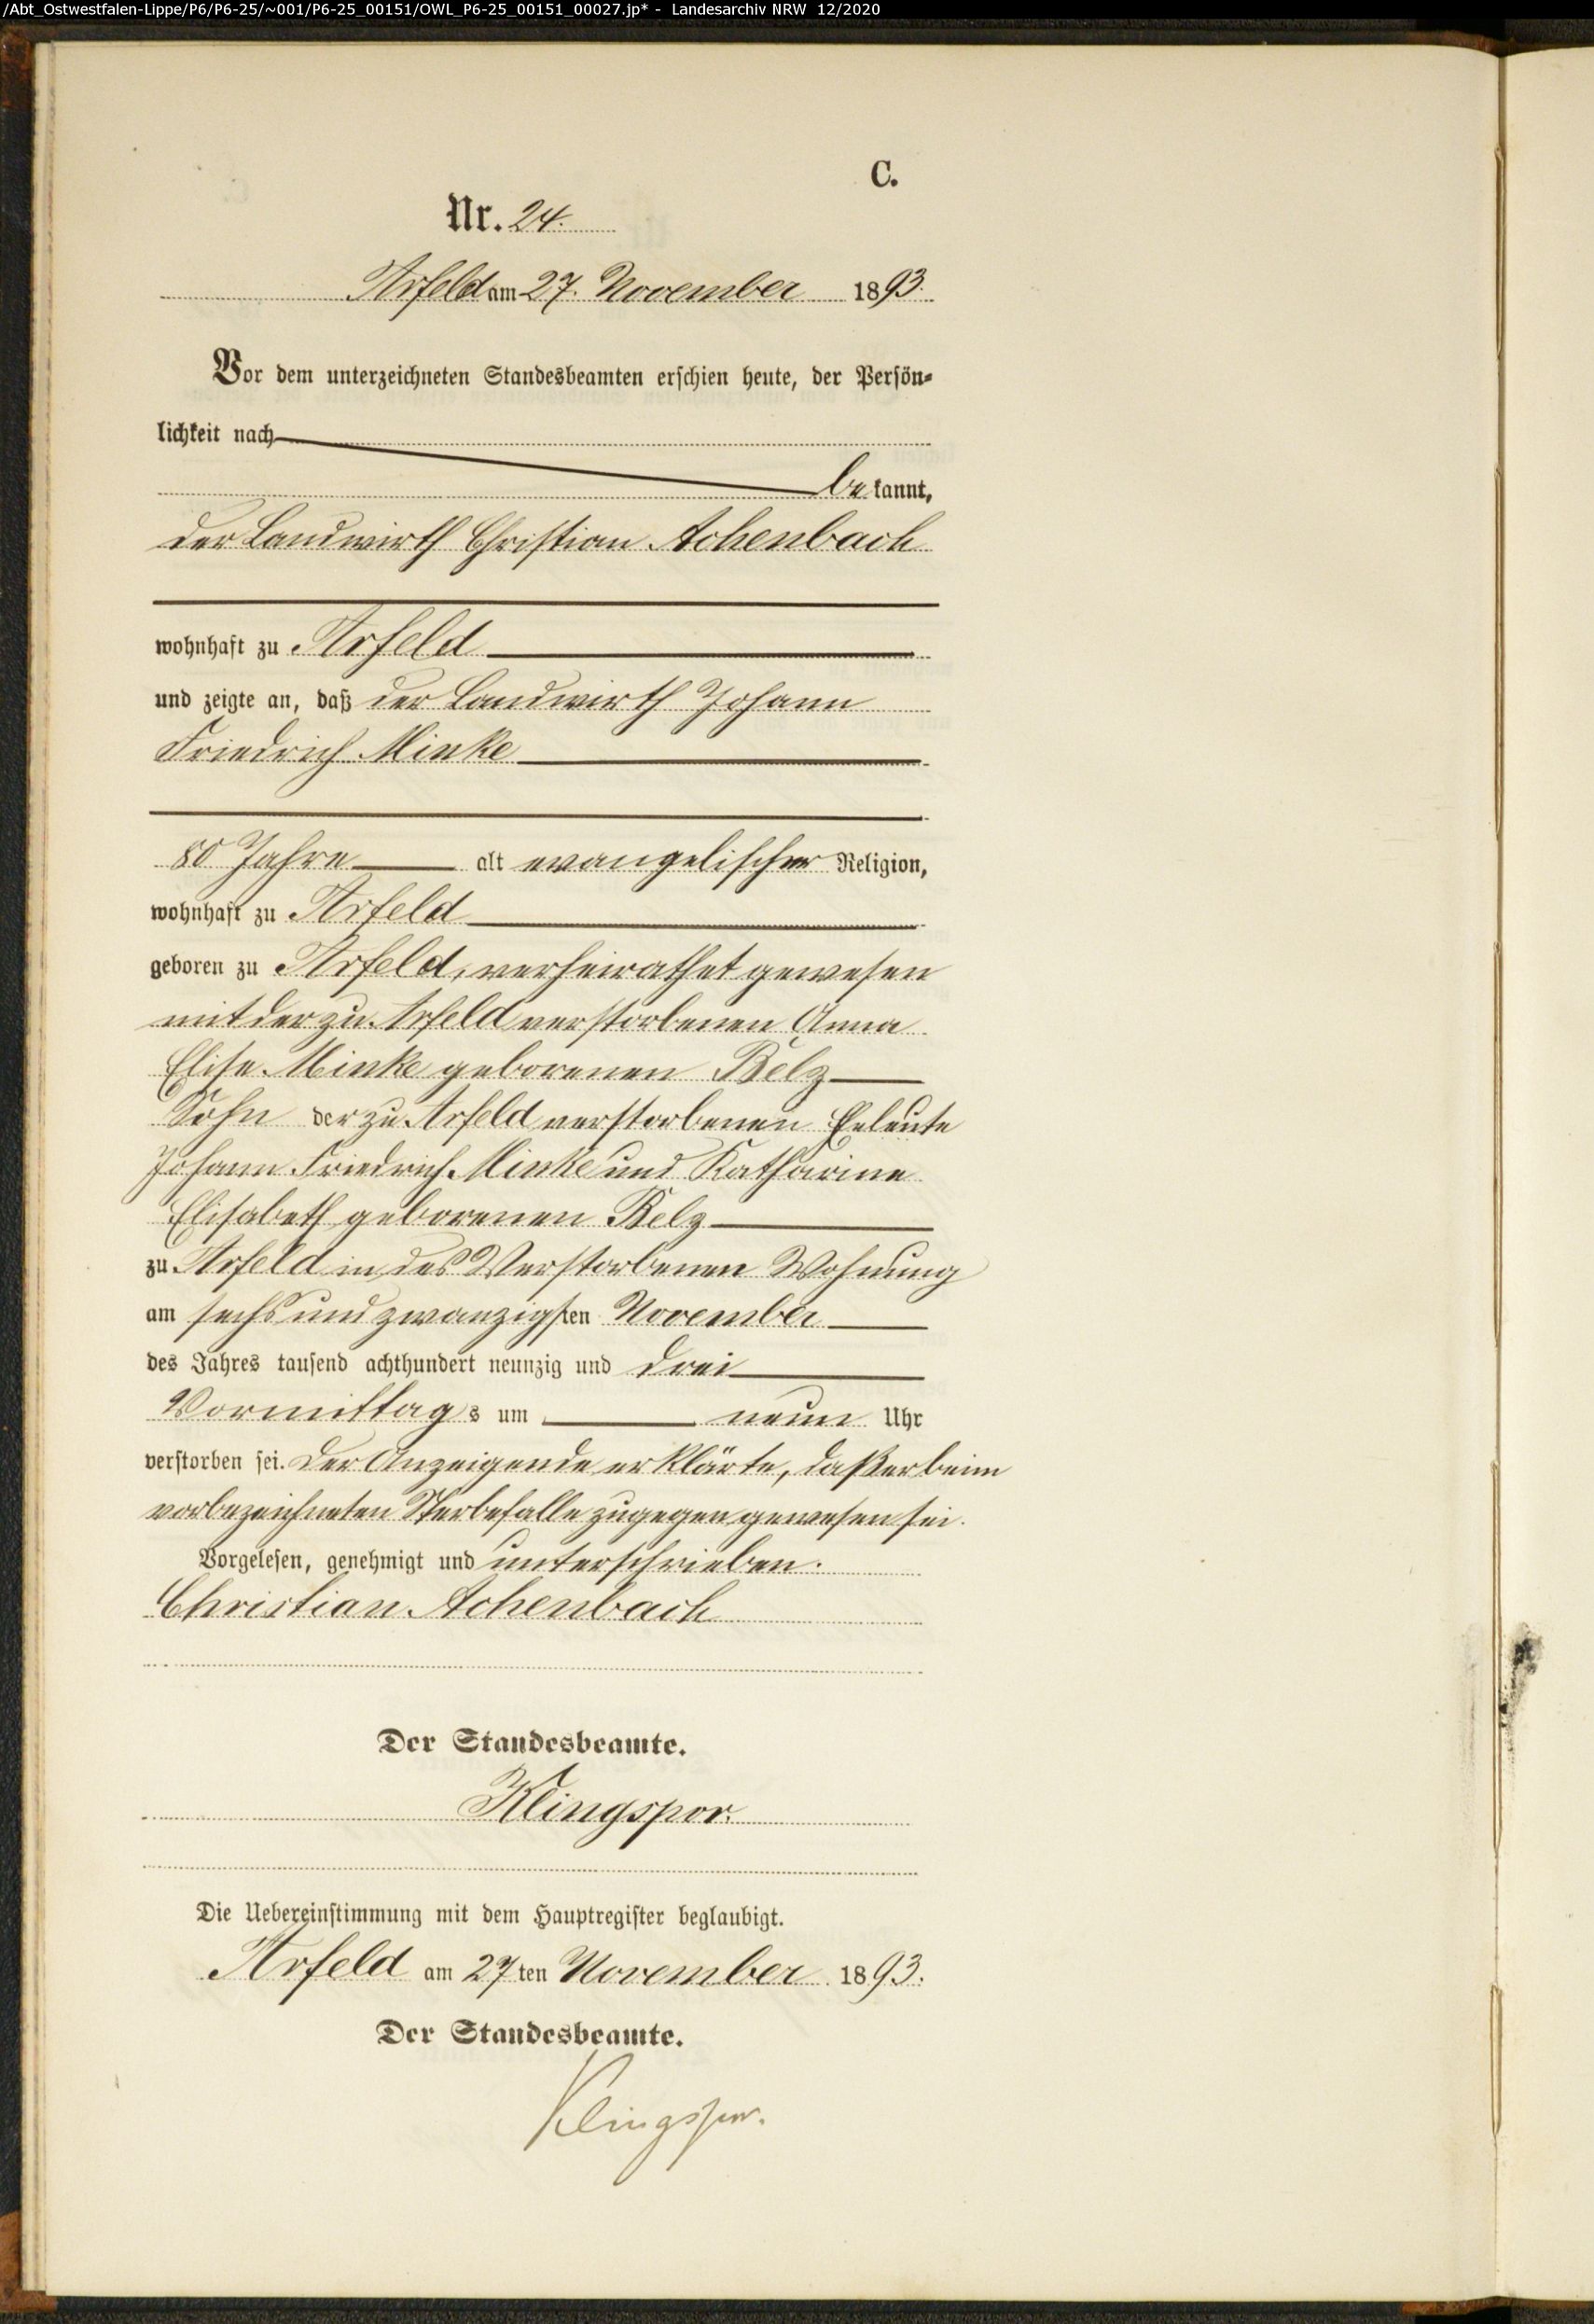 /Abt_Ostwestfalen-Lippe/P6/P6-25/~001/P6-25_00151/OWL_P6-25_00151_00027.jp* - Landesarchiv NRW 12/2020
C.
Nr. 24.
Arfeld am 27. November 1893.
Vor dem unterzeichneten Standesbeamten erschien heute, der Persön-
lichkeit nach
bekannt,
der Landwirth Christian Achenbach
wohnhaft zu Arfeld
und zeigte an, daß der Landwirth Johann
Friedrich Minke
80 Jahre alt evangelischer Religion,
wohnhaft zu Arfeld
geboren zu Arfeld, verheirathet gewesen
mit der zu Arfeld verstorbenen Anna
Elise Minke geborenen Belz
Sohn der zu Arfeld verstorbenen Eheleute
Johann Friedrich Minke und Katharine
Elisabeth geborenen Belz
zu Arfeld in des Verstorbenen Wohnung
am sechs und zwanzigsten November
des Jahres tausend achthundert neunzig und drei
Vormittags um neun Uhr
verstorben sei. Der Anzeigende erklärte, daß er beim
vorbezeichneten Sterbefalle zugegen gewesen sei.
Vorgelesen, genehmigt und unterschrieben.
Christian Achenbach
Der Standesbeamte.
Klingspor.
Die Uebereinstimmung mit dem Hauptregister beglaubigt.
Arfeld am 27ten November 1893.
Der Standesbeamte.
Klingspor.